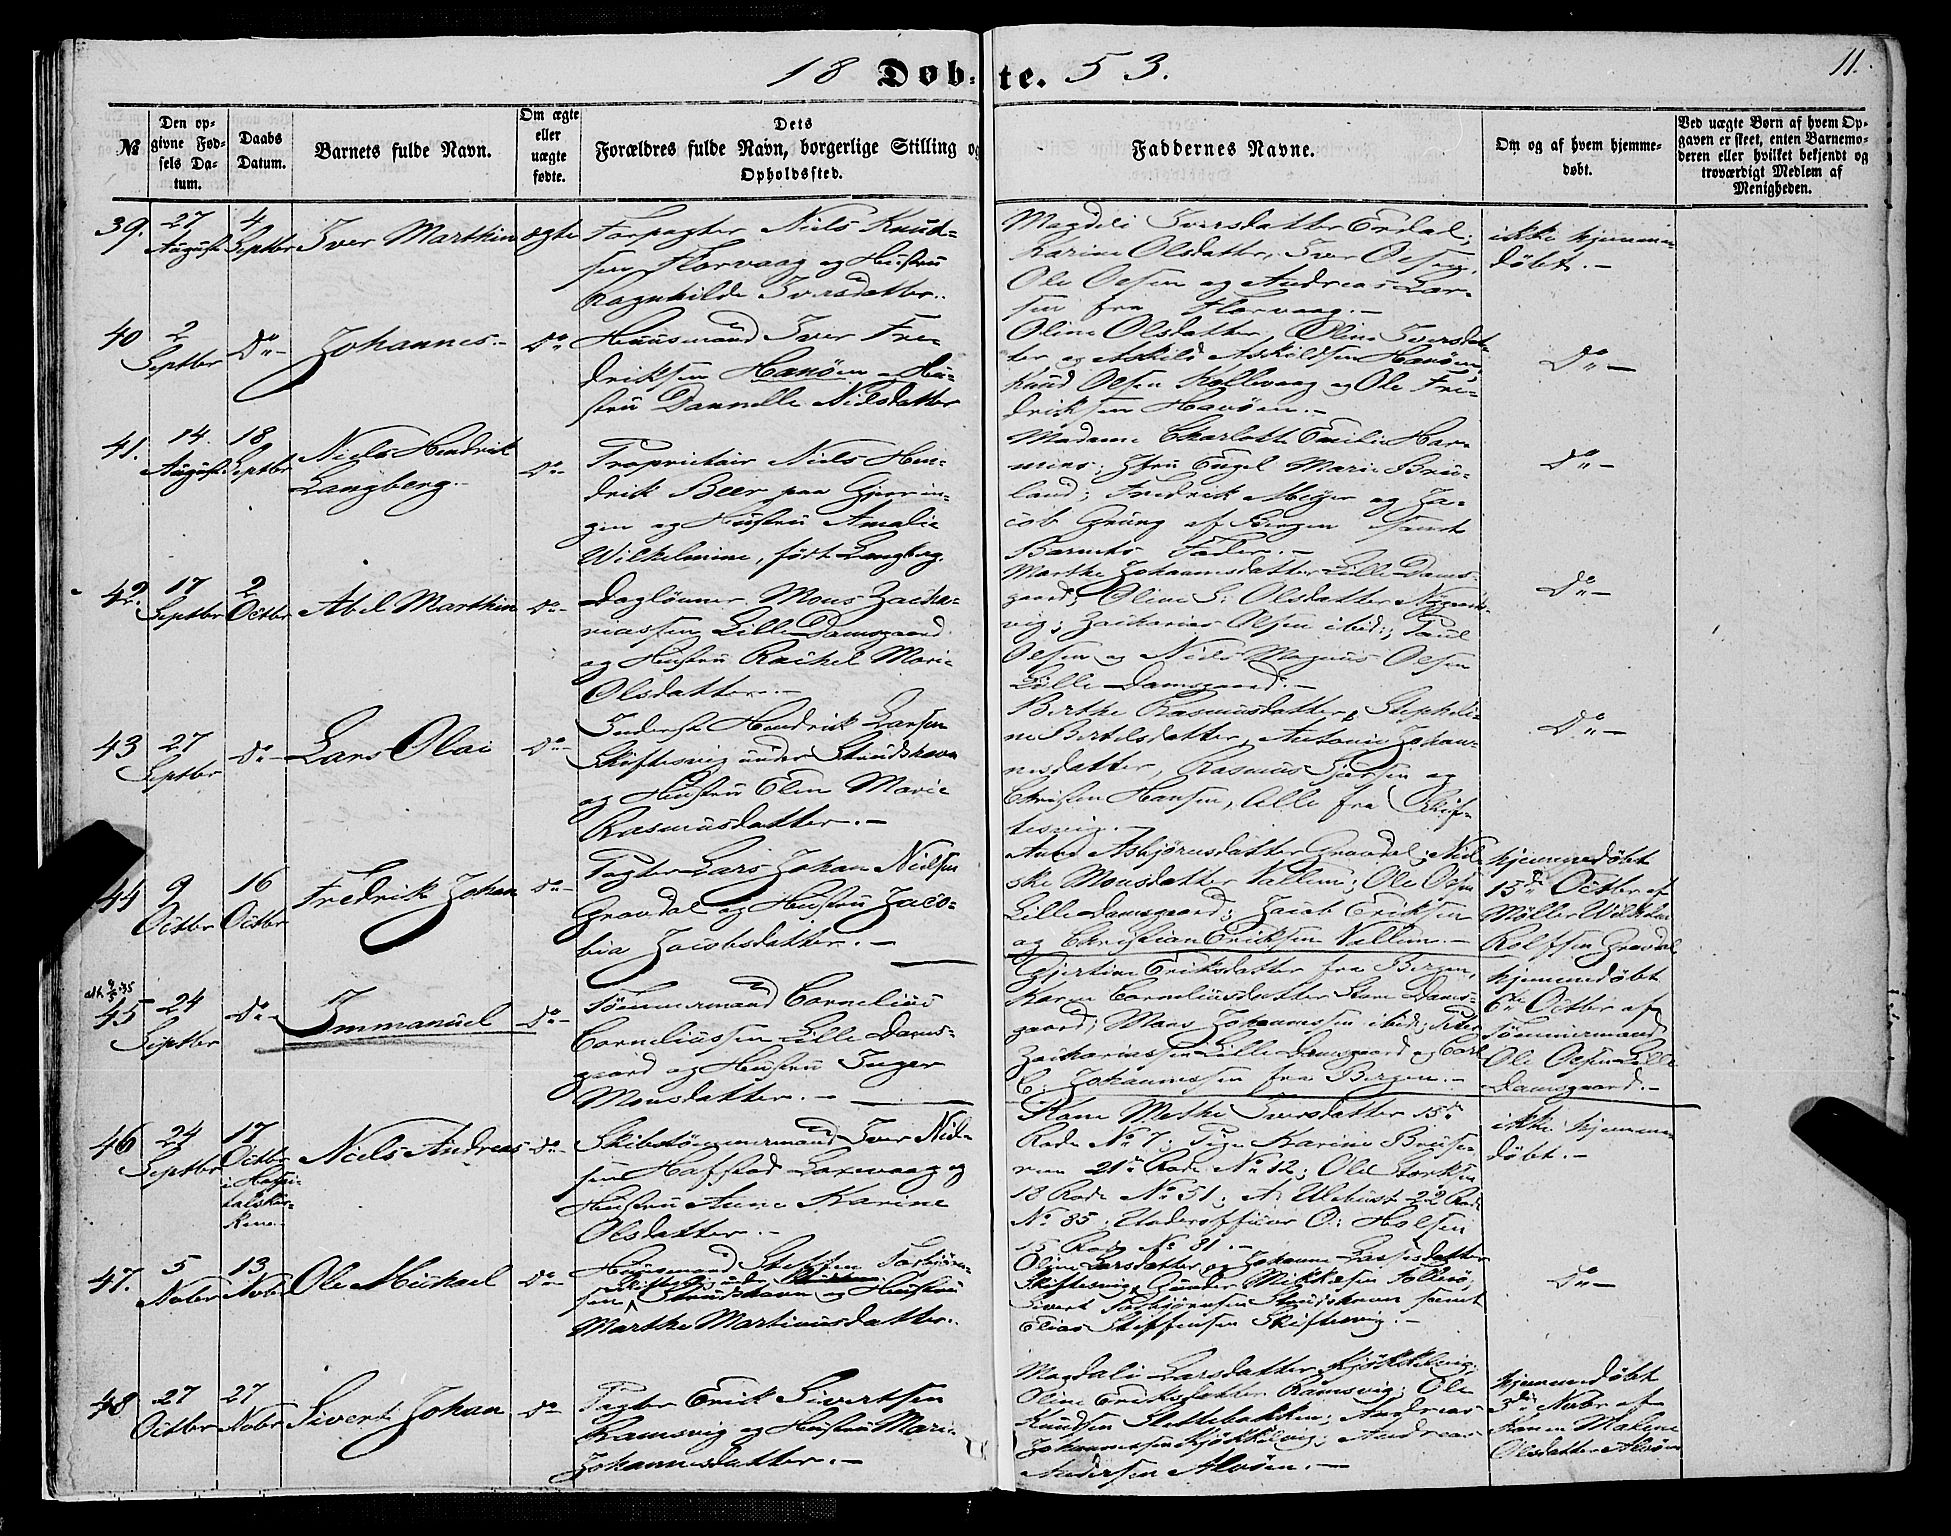 18 Døbte. 53.
11.
№
Den opgivne Fødsels Datum.
Daabs Datum.
Barnets fulde Navn.
Om ægte eller uægte fødte.
Dets Forældres fulde Navn, borgerlige Stilling og Opholdssted.
Faddernes Navne.
Om og af hvem hjemmedøbt.
Ved uægte Børn af hvem Opgaven er skeet, enten Barnemoderen eller hvilket bekjendt og troværdigt Medlem af Menigheden.
39.
27 August
4 Septbr
Iver Marthin
ægte
Forpagter Niels Knud-
sen Florvaag og Hustru
Ragnhilde Iversdatter.
Magdeli Iversdatter Erdal;
Karine Olsdatter, Iver Olsen,
Ole Olsen og Andreas Lar-
sen fra Florvaag.-
ikke hjemme-
døbt.-
40
2 Septbr
Do-
Johannes.-
Do
Huusmand Iver Fre-
driksen Hanøen og Hu-
stru Dannelle Nilsdatter
Oline Olsdatter, Oline Iversdat-
ter og Askild Askildsen Hanøen,
Knud Olsen Kollevaag og Ole Fre-
driksen Hanøen.-
Do-
41.
14. August
18 Septbr
Niels Hendrik
Langberg.-
Do-
Proprietair Niels Hen-
drik Beer paa Gjerrin-
gen og Hustru Amalie
Wilhelmine, født Langberg.
Madame Charlotte Emilie Har-
mens; Jfru Engel Marie Bru-
land; Fredrik Meyer og Ja-
cob Grung af Bergen samt
Barnets Fader.-
Do-
42.
17 Septbr
2 Octbr
Abel Marthin
Do-
Dagløнner Mons Zacha-
riassen Lille Damsgaard
og Hustru Rachel Marie
Olsdatter.-
Marthe Johannesdatter Lille Dams-
gaard; Oline S: Olsdatter
vig; Zacharias Olsen ibid:; Poul
Olsen og Niels Magnus Olsen
Lille Damsgaard.-
Do-
43
27 Septbr
Do-
Lars Olai
Do-
Inderst Hendrik Larsen
Skiftesvig under Strudshavn
og Hustru Elen Marie
Rasmusdatter.-
Berthe Rasmusdatter, Stepheli-
ne Bertelsdatter, Antonie Johan-
nesdatter, Rasmus og
Christen Hansen, Alle fra Skif-
tesvig.-
Do-
44
9 Octbr
16 Octbr
Fredrik Johan
Do-
Pagter Lars Johan Nielsen
Gravdal og Hustru Jaco-
bia Jacobsdatter.-
Anna Asbjørnsdatter Gravdal; Niel-
ske Monsdatter Vallem; Ole Olsen
Lille Damsgaard; Jacob Eriksen
og Christian Eriksen Vallem.-
hjemmedøbt
15de Octbr af
Møller Wilhelm
Rolfsen Gravdal
45
24 Septbr
Do-
Immanuel
Do-
Tømmermand Cornelius
Corneliussen Lille Dams-
gaard og Hustru Inger
Monsdatter.-
Gjertine Eriksdatter fra Bergen,
Karen Corneliusdatter Store Dams-
gaard; Mons Johannessen ibid:; Peter
Zachariassen Lille Damsgaard og Carl
C: Johannessen fra Bergen.-
hjemmedøbt
6te Octbr af
Tømmermand
Ole Olsen Lille
Damsgaard.-
46
24 Septbr
17 Octbr
i Hospi-
talskir-
ken.-
Niels Andreas
Do-
Skibstømmermand Iver Niel-
sen Hafstad Laxevaag og
Hustru Anne Karine
Olsdatter.-
Kone Methe Iversdatter 15de
Rode No 7; Pige Karine
21de Rode No 12; Ole Storksen
18 Rode No 51; A: 22 Rode
No 85; Underofficier O: Holsen
15 Rode No 81.-
ikke hjemme-
døbt.-
47.
5 Novbr
13 Novbr
Ole Michael
Do-
Huusmand Steffen Torbjørn-
sen Skiftesvig under Strudshavn og Hustru
Marthe Martinusdatter.
Oline Larsdatter og Johanne Larsdatter
Skiftesvig, Gunder Mikkelsen Follesø,
Sivert Torbjørnsen Strudshavn samt
Elias Steffensen Skiftesvig.-
Do-
48
27 Octbr
27 Novbr
Sivert Johan
Do
Pagter Erik Sivertsen
Ramsvig og Hustru Marie
Johannesdatter.-
Magdali Larsdatter Kjøkkelvig;
Oline Eriksdatter Ramsvig; Ole
Knudsen Slettebakken; Andreas
Johannessen Kjøkkelvig; Andreas
Andersen Alvøen.-
hjemmedøbt
3de Novbr af
Karen Malene
Olsdatter Alvøen